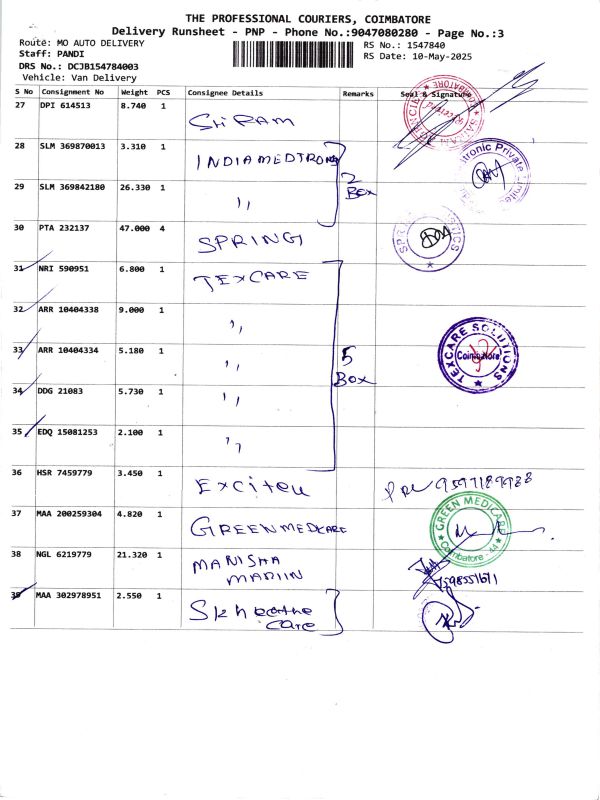 THE PROFESSIONAL COURIERS, COIMBATORE
Delivery Runsheet - PNP - Phone No.:9047080280 - Page No.:3
Route: MO AUTO DELIVERY
RS No.: 1547840
Staff: PANDI
RS Date: 10-May-2025
DRS No.: DCJB154784003
Vehicle: Van Delivery
S No Consignment No Weight PCS Consignee Details Remarks Seal & Signature
27 DPI 614513 8.740 1 Sri RAM
28 SLM 369870013 3.310 1 INDIAMEDTRONI
2 Box
29 SLM 369842180 26.330 1 ,,
30 PTA 232137 47.000 4 SPRING
31 NRI 590951 6.800 1 TEXCARE
32 ARR 10404338 9.000 1 ,,
33 ARR 10404334 5.180 1 ,,
5 Box
TEXCARE SOLUTIONS
Coimbatore
34 DDG 21083 5.730 1 ,,
35 EDQ 15081253 2.100 1 ,,
36 HSR 7459779 3.450 1 Exciteu
37 MAA 200259304 4.820 1 GREENMEDCARE
GREEN MEDICARE
Coimbatore - 44
38 NGL 6219779 21.320 1 MANISHA
MARIIN
39 MAA 302978951 2.550 1 Skh
care